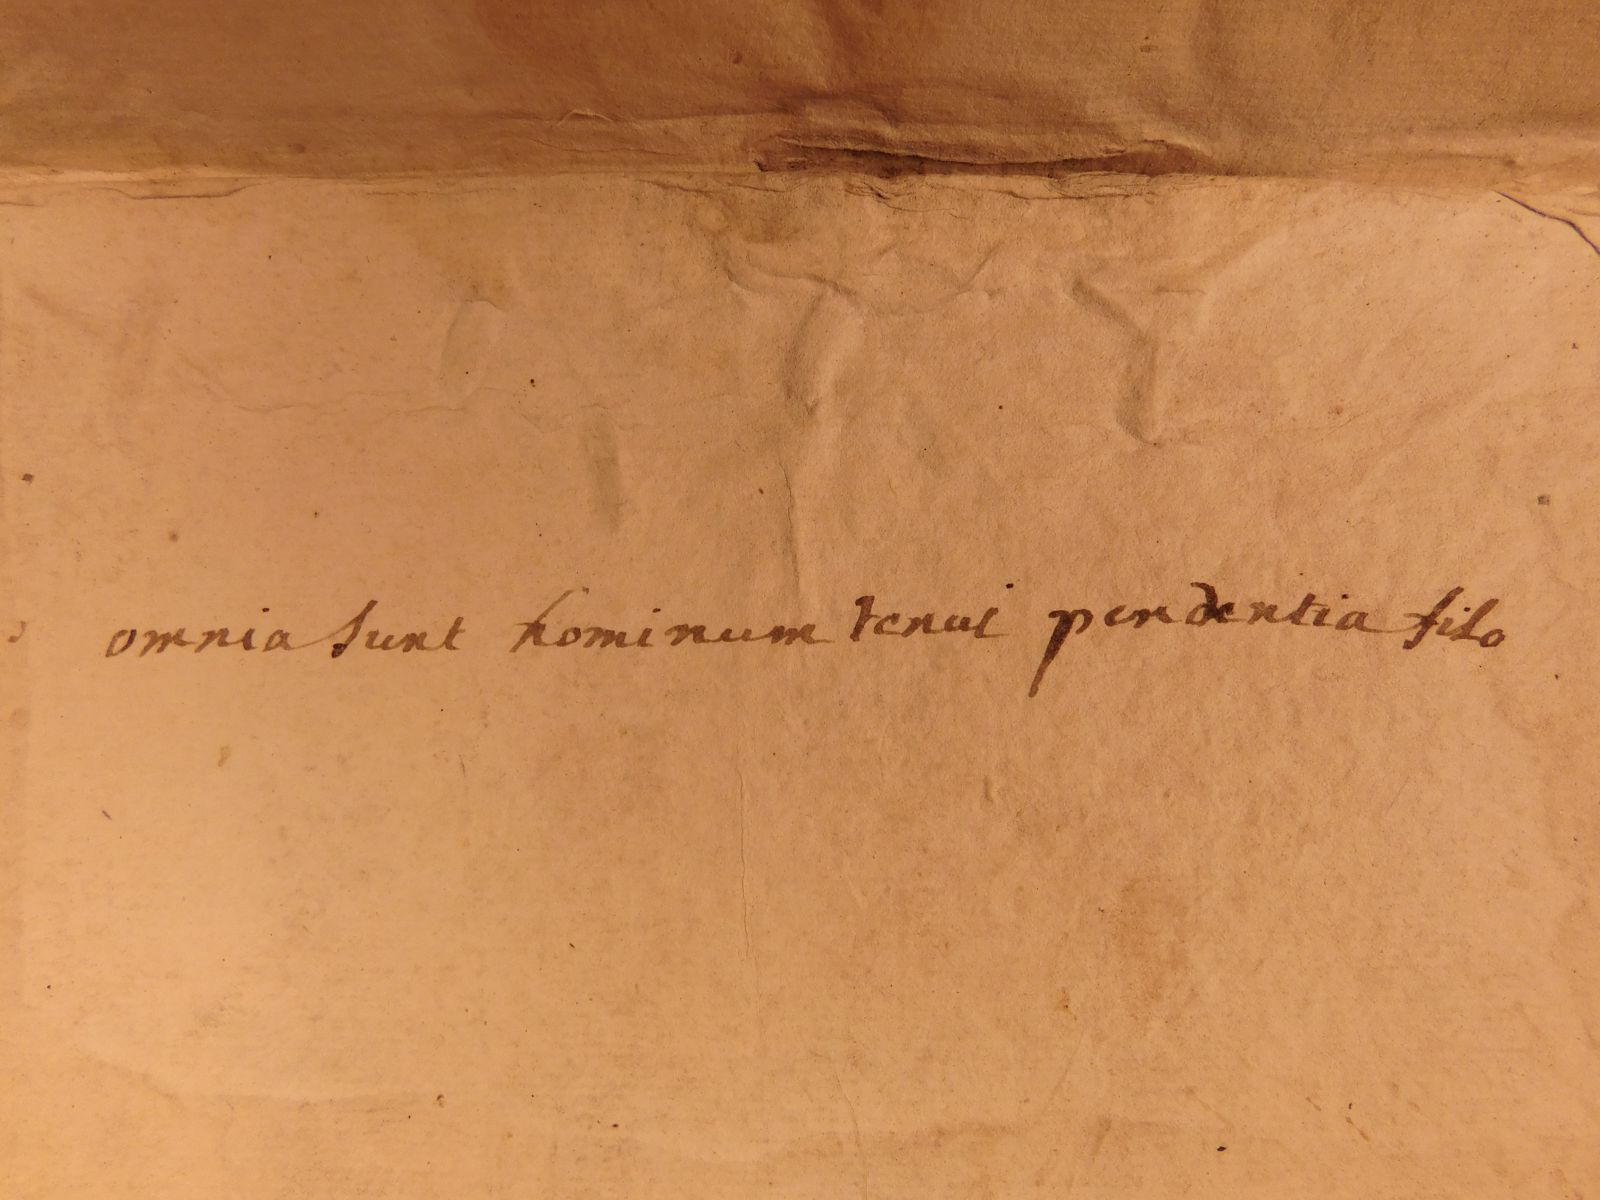 omnia sunt hominum tenui pendentia filo